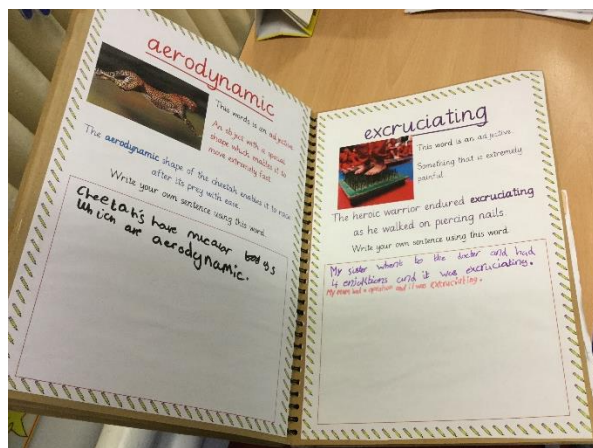 aerodynamic
This words is an adjective.
An object with a special
shape which enables it to
move extremely fast.
The aerodynamic shape of the cheetah enables it to race
after its prey with ease.
Write your own sentence using this word.
Cheetah's have mucalor bodys
Which are aerodynamic.
excruciating
This word is an adjective.
Something that is extremely
painful.
The heroic warrior endured excruciating
as he walked on piercing nails.
Write your own sentence using this word.
My sister whent to the doctor and had
4 and it was excruciating.
My mum had a and it was excruciating.